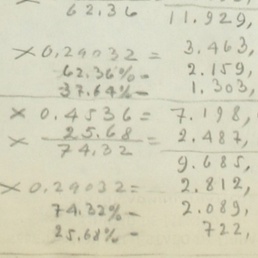 62.36 11.929,
× 0.29032 = 3.463,
62.36% = 2.159,
37.64% = 1.303,
× 0.4536 = 7.198,
× 25.68 = 2.487,
74.32
9.685,
× 0.29032 = 2.812,
74.32% = 2.089,
25.68% = 722,